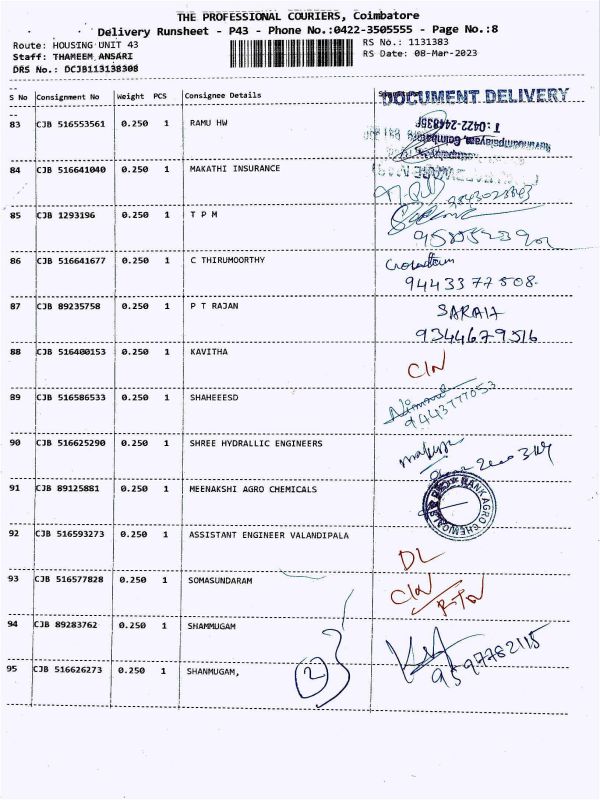 THE PROFESSIONAL COURIERS, Coimbatore
Delivery Runsheet - P43 - Phone No.:0422-3505555 - Page No.:8
Route: HOUSING UNIT 43 RS No.: 1131383
Staff: THAMEEM ANSARI RS Date: 08-Mar-2023
DRS No.: DCJB113138308
S No Consignment No Weight PCS Consignee Details DOCUMENT DELIVERY
83 CJB 516553561 0.250 1 RAMU HW
84 CJB 516641040 0.250 1 MAKATHI INSURANCE
85 CJB 1293196 0.250 1 T P M
86 CJB 516641677 0.250 1 C THIRUMOORTHY
9443377508
87 CJB 89235758 0.250 1 P T RAJAN SARAIA
9344679516
88 CJB 516400153 0.250 1 KAVITHA C/N
89 CJB 516586533 0.250 1 SHAHEEESD
9443777053
90 CJB 516625290 0.250 1 SHREE HYDRALLIC ENGINEERS
91 CJB 89125881 0.250 1 MEENAKSHI AGRO CHEMICALS
92 CJB 516593273 0.250 1 ASSISTANT ENGINEER VALANDIPALA
DL
93 CJB 516577828 0.250 1 SOMASUNDARAM C/N
RTN
94 CJB 89283762 0.250 1 SHAMMUGAM
95 CJB 516626273 0.250 1 SHANMUGAM, 2 9597782115